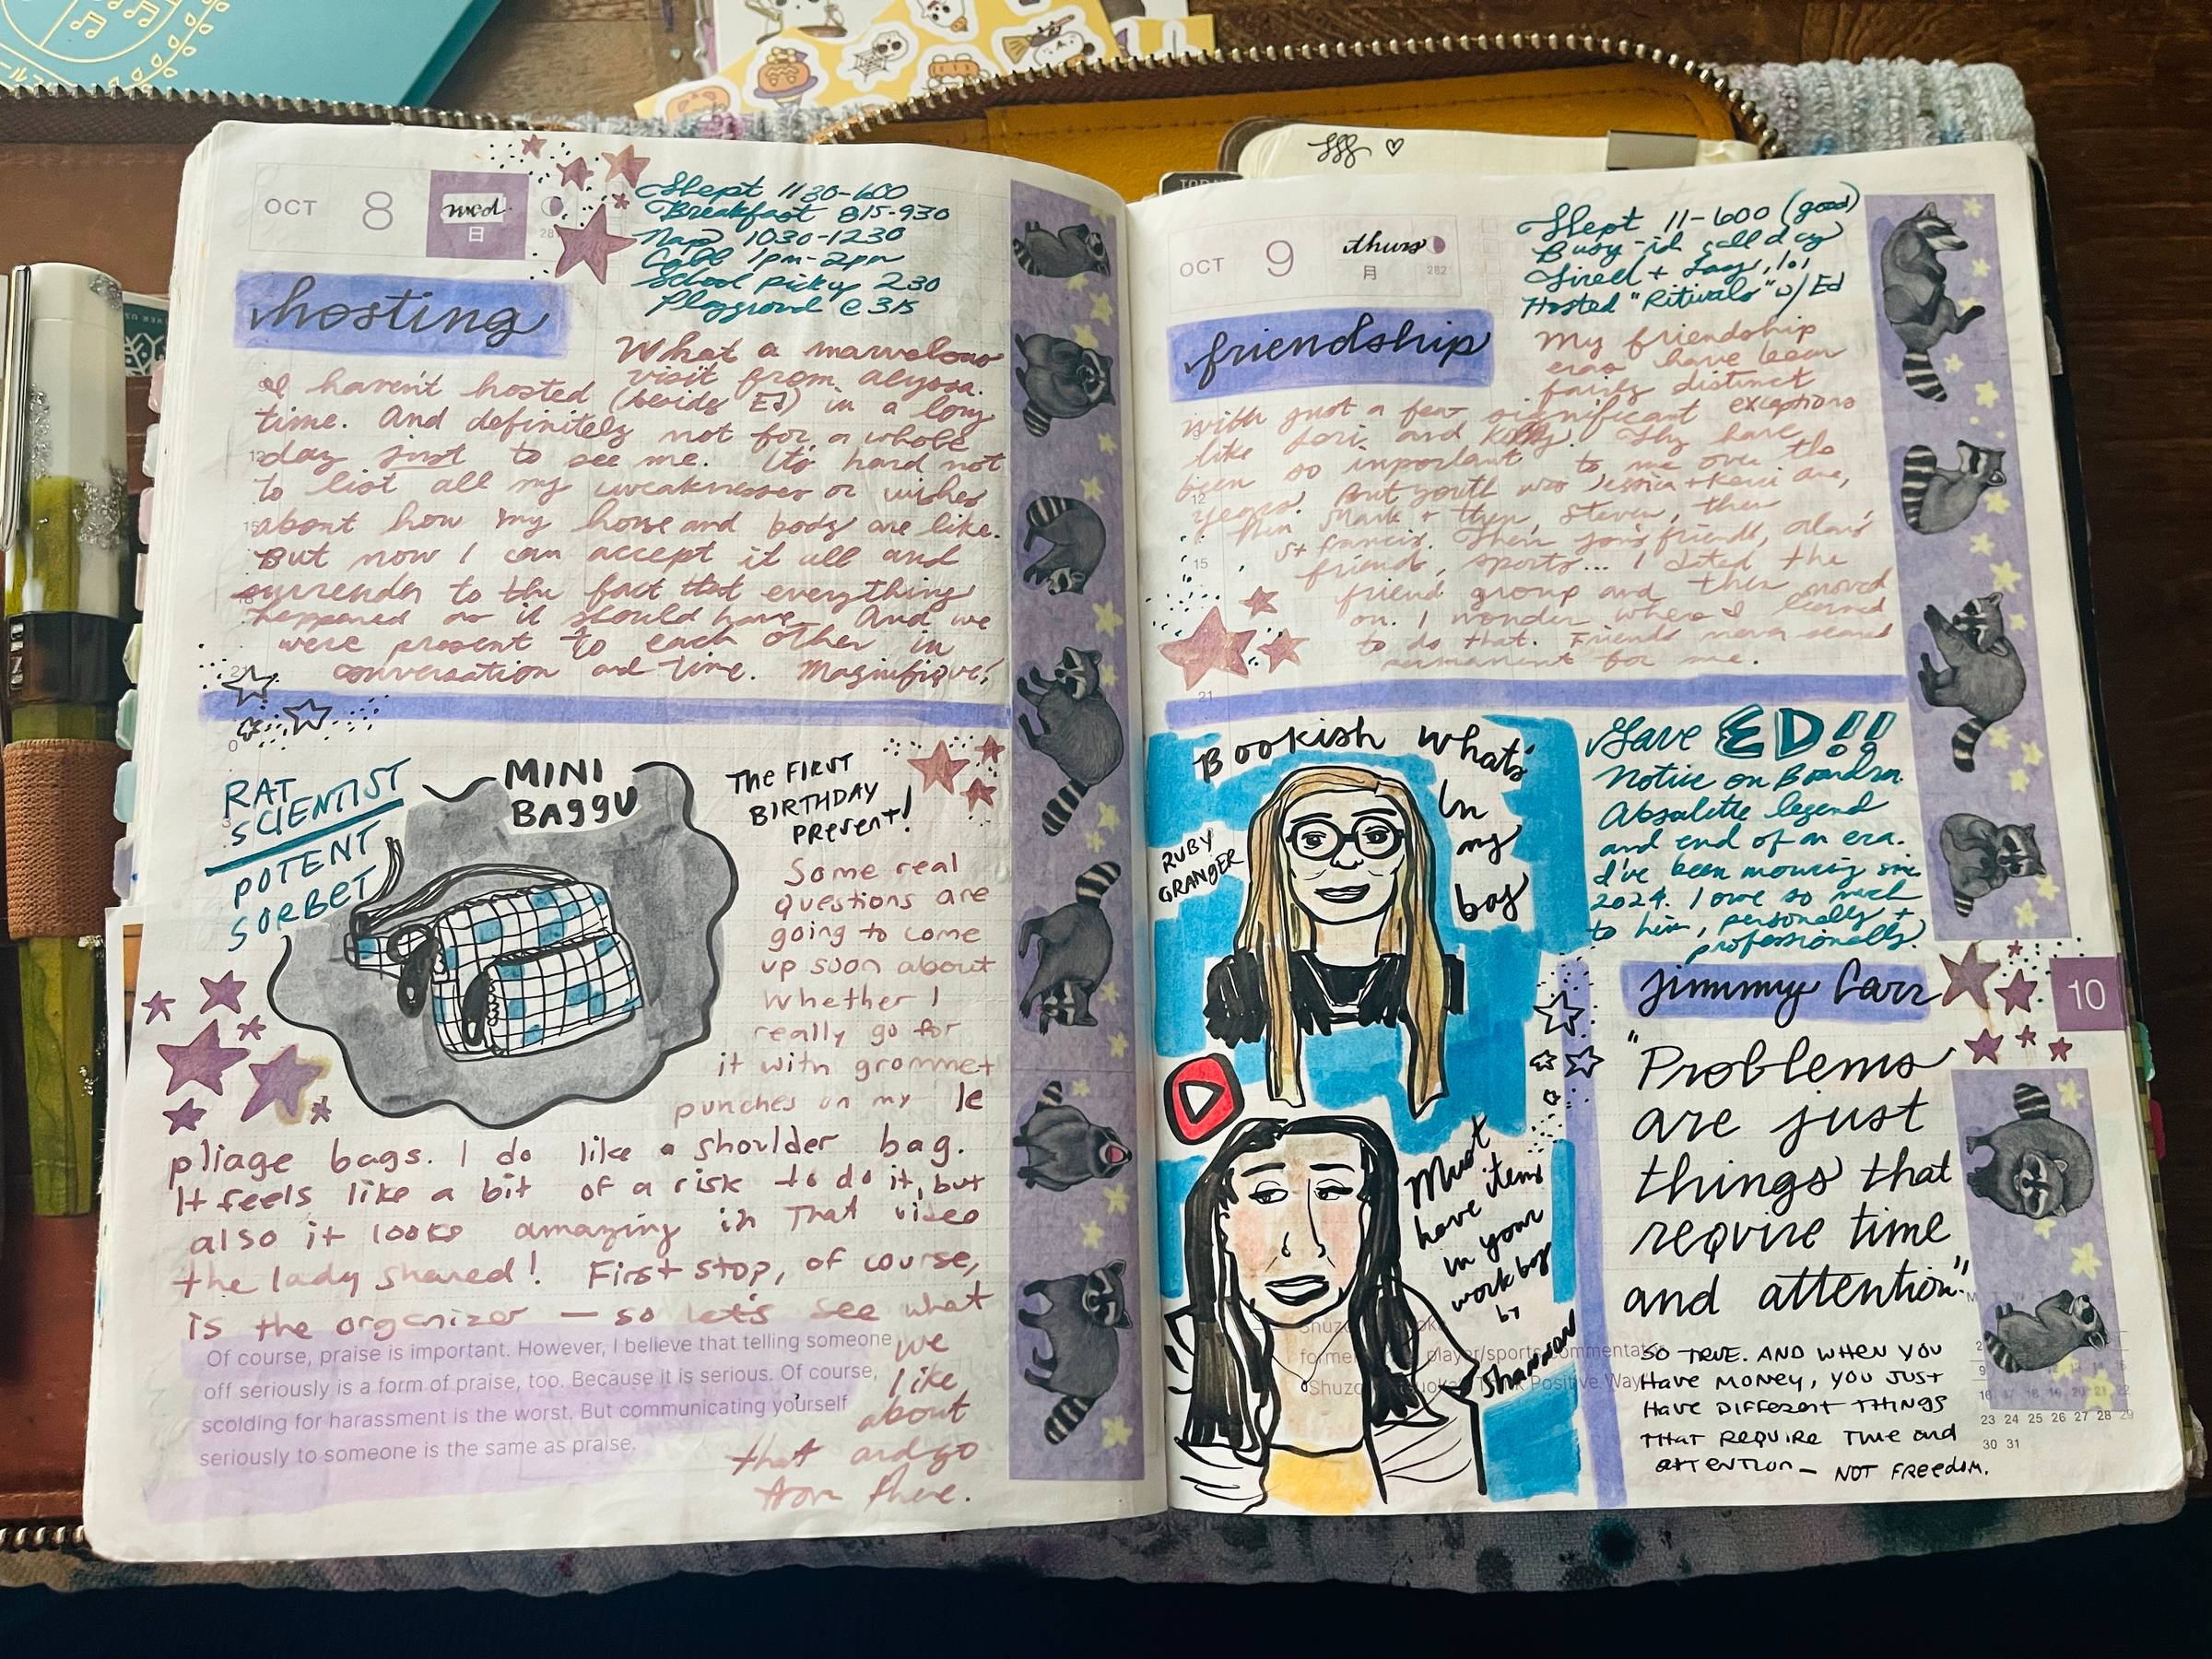 OCT 8 wed 日
Slept 1130-600
Breakfast 815-930
Nap 1030-1230
Call 1pm-2pm
School pickup 230
Playground @ 315
hosting
What a marvelous
visit from alyssa.
I haven't hosted (beside ED) in a long
time. And definitely not for a whole
day just to see me. It's hard not
to list all my weaknesses or wishes
about how my home and body are like.
But now I can accept it all and
surrender to the fact that everything
happened as it should have. And we
were present to each other in
conversation and time. Magnifique!
RAT
SCIENTIST
POTENT
SORBET
MINI
BAGGU
THE FIRST
BIRTHDAY
PRESENT!
Some real
questions are
going to come
up soon about
whether I
really go for
it with grommet
punches on my le
pliage bags. I do like a shoulder bag.
It feels like a bit of a risk to do it, but
also it looks amazing in that video
the lady shared! First stop, of course,
is the organizer — so let's see what
we
like
about
that and go
from there.
Of course, praise is important. However, I believe that telling someone
off seriously is a form of praise, too. Because it is serious. Of course,
scolding for harassment is the worst. But communicating yourself
seriously to someone is the same as praise.
OCT 9 thurs 月
282
Slept 11-600 (good)
Busy-ish call day
Tired + Lazy, lol
Hosted "Rituals" w/ Ed
friendship
My friendship
eras have been
fairly distinct
with just a few significant exceptions
like Lori, and Kelly. They have
been so important to me over the
years! But youth was Jessica + are,
then Mark + then, Steven, then
St Francis. Then Jon's friends, Alan's
friend, sports... I dated the
friend group and then moved
on. I wonder where I learned
to do that. Friends never seemed
permanent for me.
Bookish What's
in
my
bag
RUBY
GRANGER
Must
have items
in your
work bag
by
Shannon
Gave ED!!
Notice on
Absolute legend
and end of an era.
I've been mourning since
2024. I owe so much
to him, personally +
professionally.
Jimmy Carr
10
"Problems
are just
things that
require time
and attention."
SO TRUE. AND WHEN YOU
HAVE MONEY, YOU JUST
HAVE DIFFERENT THINGS
THAT REQUIRE TIME and
ATTENTION — NOT FREEDOM.
23 24 25 26 27 28 29
30 31